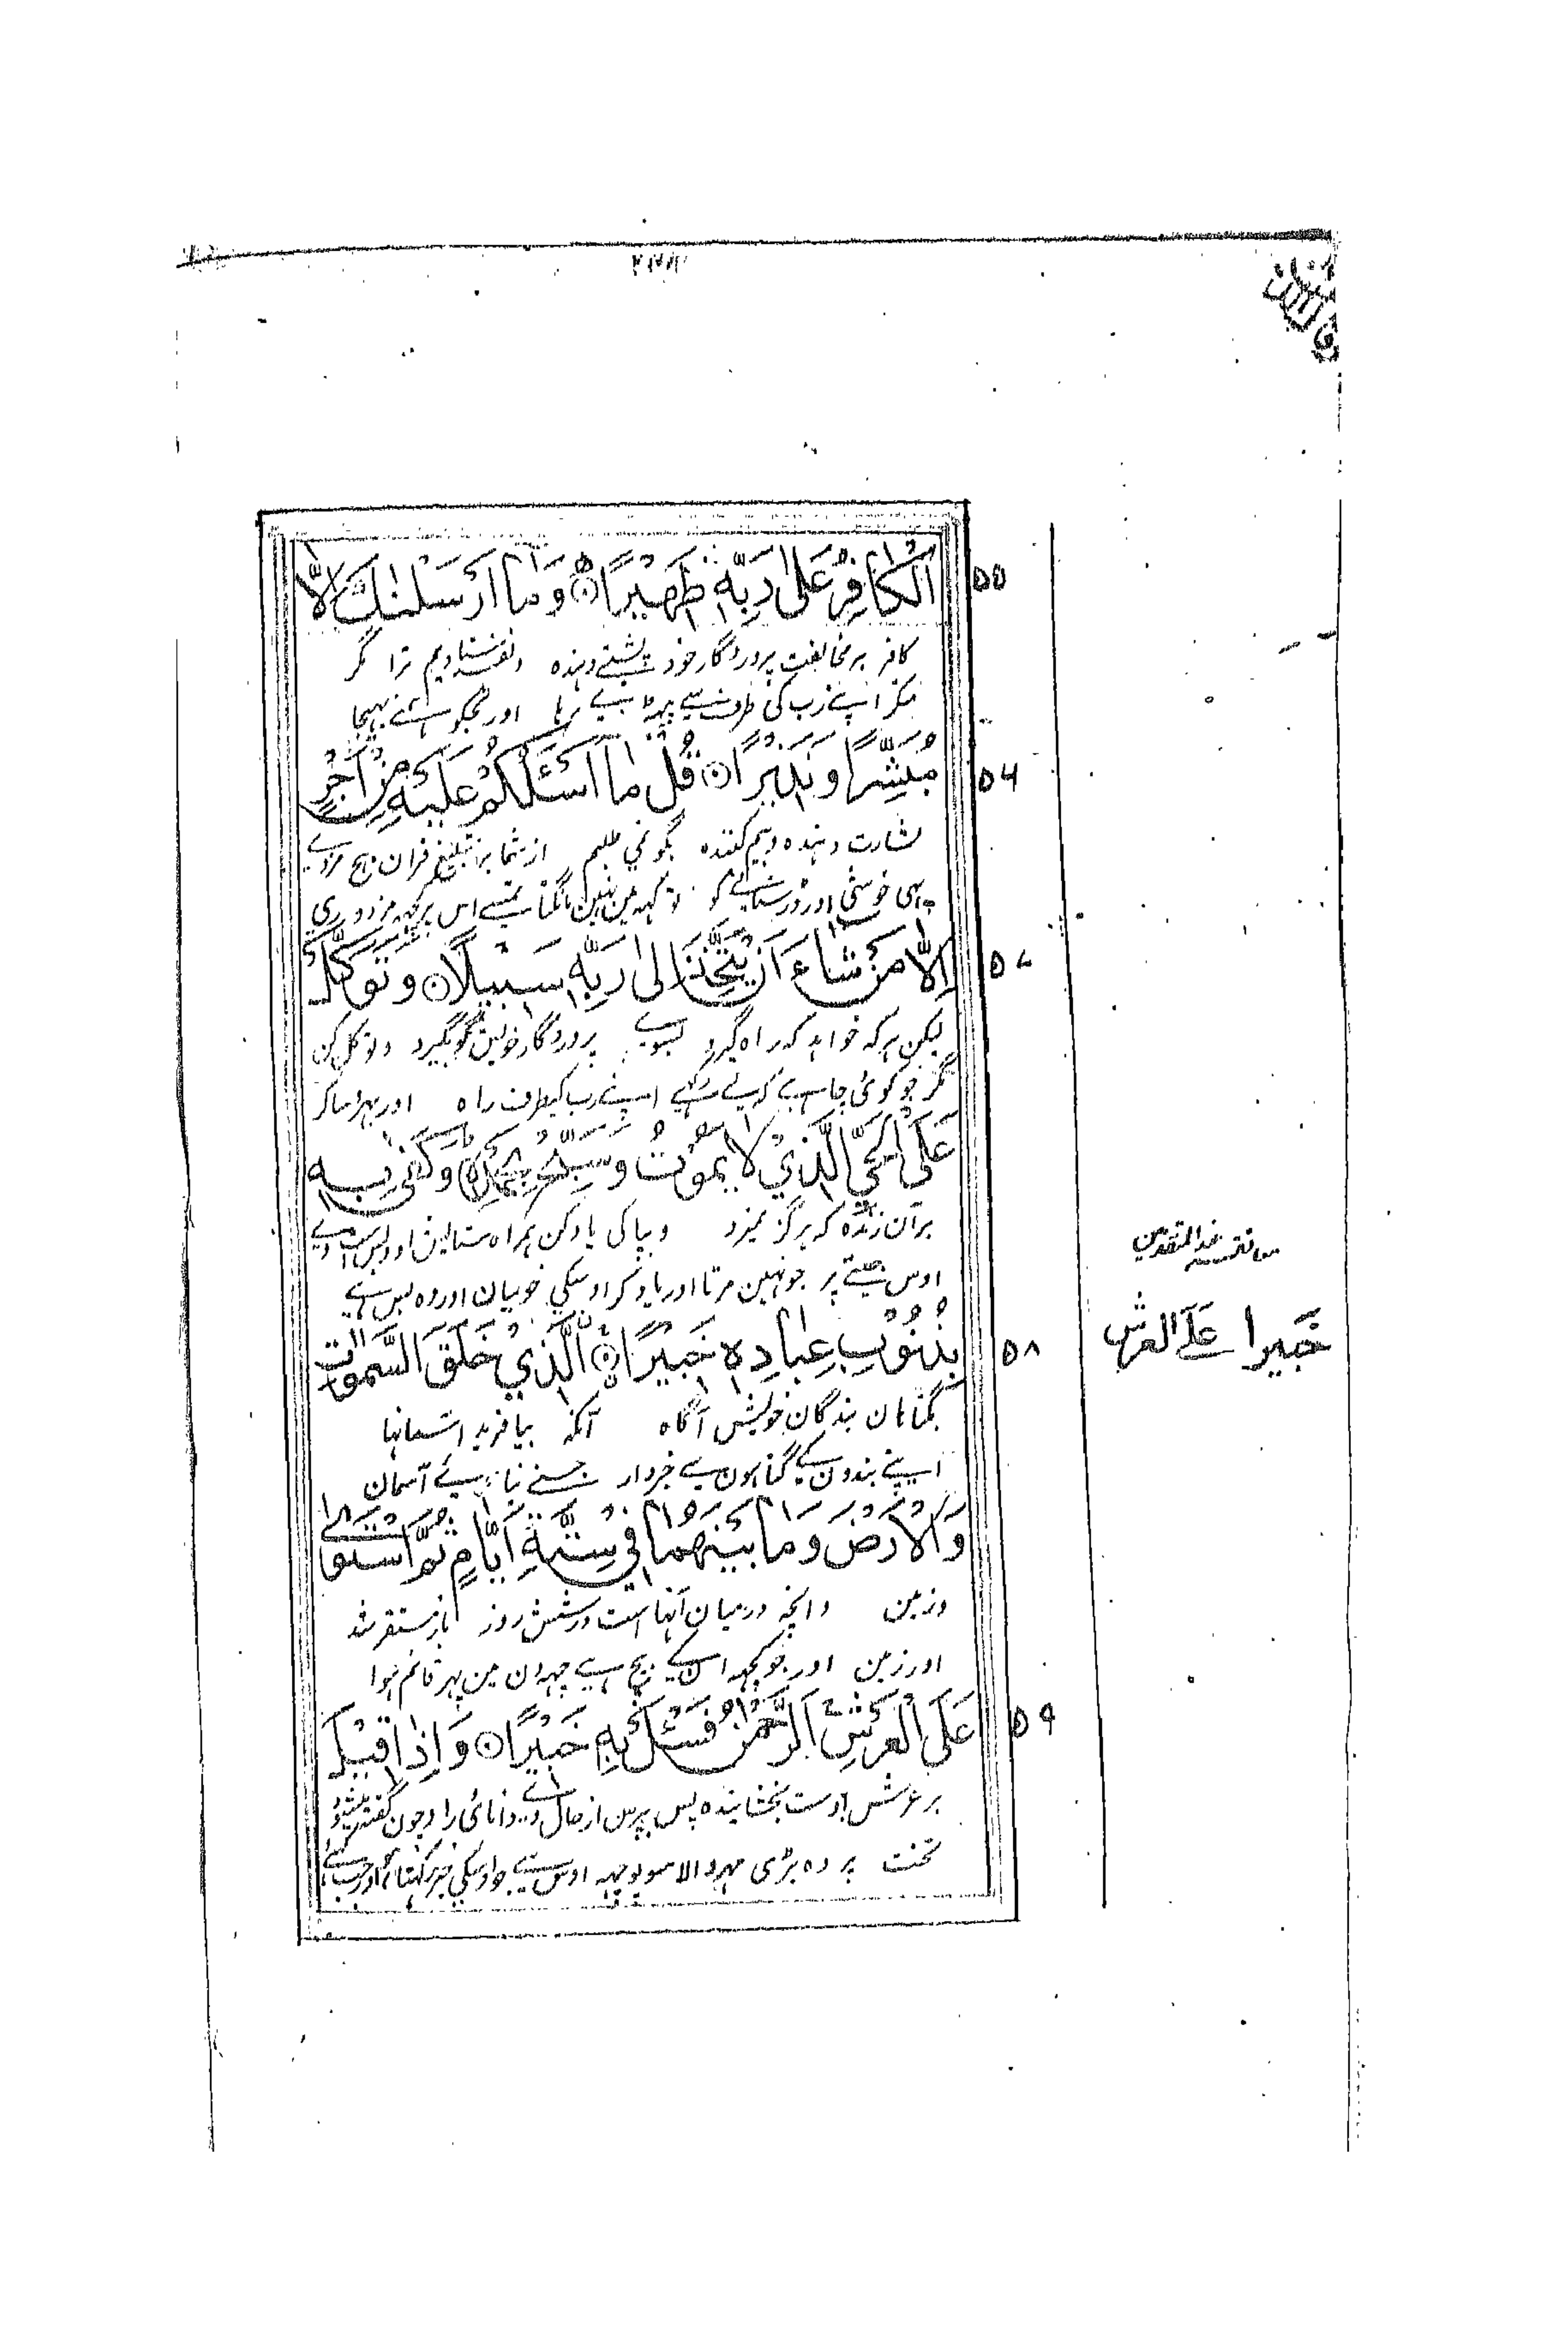 الْكَافِرُ عَلٰى رَبِّهٖ ظَهِيْرًا ۝ وَمَا اَرْسَلْنٰكَ اِلَّا
۵۵
كافر بر مخالفت پروردگار خود پشتے دهنده و نفرستاديم ترا مگر
منكر اپنے رب كى طرف سے پيٹھ ديے رہا اور تجكو ہمنے بهيجا
مُبَشِّرًا وَنَذِيْرًا ۝ قُلْ مَا اَسْئَلُكُمْ عَلَيْهِ مِنْ اَجْرٍ
۵۶
بشارت دهنده وبيم كننده بگو نمي طلبم از شما بر تبليغ قران هيچ مزدے
يہى خوشى اور ڈر سنانے كو تو كہہ مين نہين مانگتا تمسے اس پر كچہہ مزدوري
اِلَّا مَنْ شَاءَ اَنْ يَّتَّخِذَ اِلٰى رَبِّهٖ سَبِيْلًا ۝ وَتَوَكَّلْ
۵۷
ليكن هر كه خواهد كه راه گيرد بسوے پروردگار خويش گو بگيرد و توكل كن
مگر جو كوئى چاہے كه لے ركهے اپنے رب كيطرف راه اور بهروسا كر
عَلَى الْحَيِّ الَّذِيْ لَا يَمُوْتُ وَسَبِّحْ بِحَمْدِهٖ وَكَفٰى بِهٖ
بر آن زنده كه هرگز نميرد و بپاكى ياد كن همراه ستايش او و بس است وے
اوس جيتے پر جو نہين مرتا اور ياد كر اوسكي خوبيان اور وه بس ہے
بِذُنُوْبِ عِبَادِهٖ خَبِيْرًا ۝ الَّذِيْ خَلَقَ السَّمٰوٰتِ
۵۸
بگناهان بندگان خويش آگاه آنكه بيافريد آسمانها
اپنے بندون كے گناہون سے خبردار جسنے بنائے آسمان
وَالْاَرْضَ وَمَا بَيْنَهُمَا فِيْ سِتَّةِ اَيَّامٍ ثُمَّ اسْتَوٰى
وزمين وانچه درميان آنهاست در شش روز باز مستقر شد
اور زمين اور جو كچہہ اسكے بيچ ہے چہه دن مين پہر قائم ہوا
عَلَى الْعَرْشِ الرَّحْمٰنُ فَسْئَلْ بِهٖ خَبِيْرًا ۝ وَاِذَا قِيْلَ
۵۹
بر عرش اوست بخشاينده پس بپرس از حال وے دانائى را وچون گفته ميشود
تخت پر وه بڑى مہر والا سو پوچهه اوس سے جو اوسكي خبر ركهتا ہے اور جب كہئے
معانقة عند المتقدمين
خَبِيرا عَلَى العرش